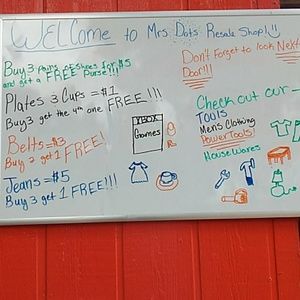 WELCome to Mrs Dots Resale Shop!!
Buy 3 pairs of Shoes for $5
and get a FREE Purse!!!
Plates 3 Cups = $1
Buy 3 get the 4th one FREE!!!
Belts = $3
Buy 2 get 1 FREE!
Jeans = $5
Buy 3 get 1 FREE!!!
XBOX
Games
Don't Forget to look Next
Door!!!
Check out our
Tools
Mens Clothing
Power Tools
House Wares